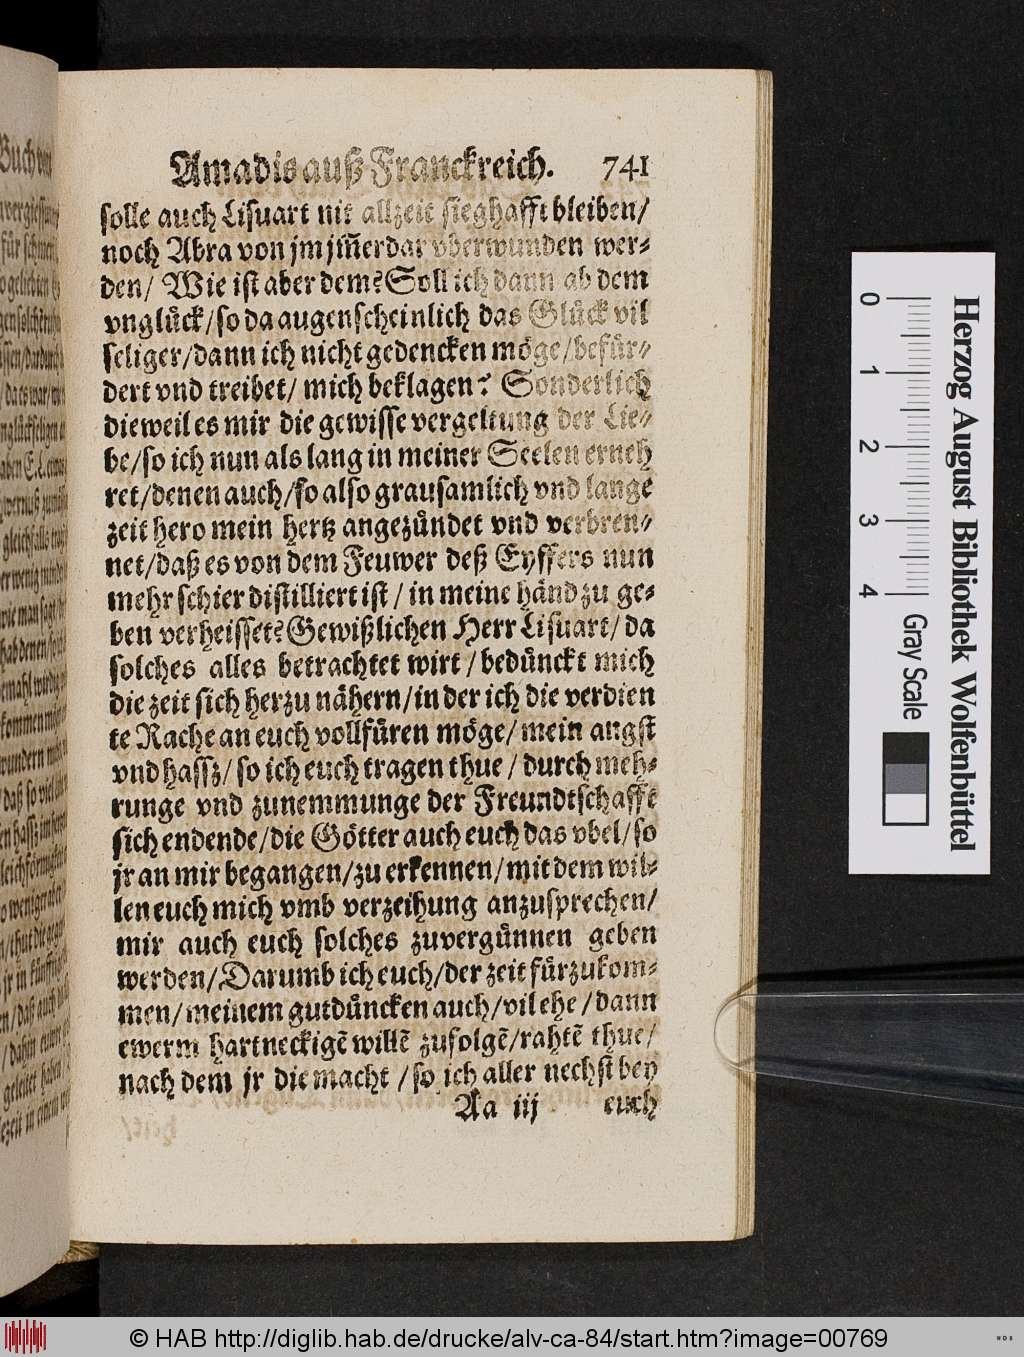 Amadis auß Franckreich. 741
solle auch Lisuart nit allzeit sieghafft bleiben/
noch Abra von jm jm̃erdar vberwunden wer-
den/ Wie ist aber dem? Soll ich dann ab dem
vnglück/so da augenscheinlich das Glück vil
seliger/dann ich nicht gedencken möge/befür-
dert vnd treibet/ mich beklagen? Sonderlich
dieweil es mir die gewisse vergeltung der Lie-
be/so ich nun als lang in meiner Seelen erneh
ret/denen auch/so also grausamlich vnd lange
zeit hero mein hertz angezündet vnd verbren-
net/daß es von dem Feuwer deß Eyffers nun
mehr schier distilliert ist / in meine händ zu ge-
ben verheisset? Gewißlichen Herr Lisuart/ da
solches alles betrachtet wirt / bedünckt mich
die zeit sich herzu nähern/in der ich die verdien
te Rache an euch vollfüren möge/ mein angst
vnd hassz/ so ich euch tragen thue / durch meh-
runge vnd zunemmunge der Freundtschafft
sich endende/die Götter auch euch das vbel/so
jr an mir begangen/zu erkennen/mit dem wil-
len euch mich vmb verzeihung anzusprechen/
mir auch euch solches zuvergünnen geben
werden/Darumb ich euch/der zeit fürzukom-
men/meinem gutdüncken auch/vil ehe/dann
ewerm hartneckigẽ willẽ zufolgẽ/rahtẽ thue/
nach dem jr die macht /so ich aller nechst bey
Aa iij euch
Herzog August Bibliothek Wolfenbüttel
0 1 2 3 4 Gray Scale
© HAB http://diglib.hab.de/drucke/alv-ca-84/start.htm?image=00769